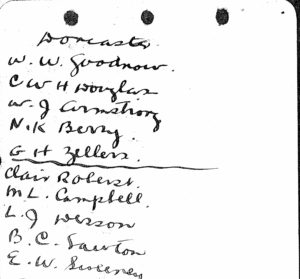 Doncaster
W. W. Goodnow.
C W H Douglas
W. J Armstrong
N. K Berry.
G H Zellers.
Clair Roberst.
M. L. Campbell.
L. J Wesson
B. C. Lawton
E. W. Sweeney